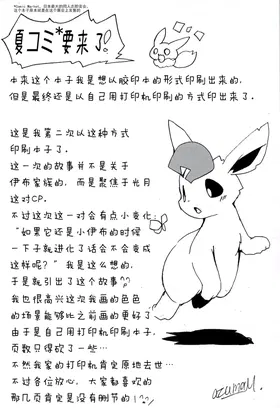 *Comic Market, 日本最大的同人志即卖会。
夏コミ*要来了!
本来这个本子我是想以胶印本的形式印刷出来的,
但是最终还是以自己用打印机印刷的方式印出来了。
这是我第二次以这种方式
印刷本子了。
这一次的故事并不是关于
伊布家族的, 而是聚焦于光月
这对CP。
不过这次这一对会有点小变化:
“如果它还是小伊布的时候
一下子就进化了话会不会变成
这样呢?” 我是这么想的,
于是就引出了这个故事!
我也很高兴这次我画的色色
的场景能够比之前画的更好了
由于是自己用打印机印刷本子,
页数只得砍了一些…
不然我家的打印机肯定原地去世…
不过各位放心, 大家都喜欢的
那几页肯定是没有删节的!
azumaY.